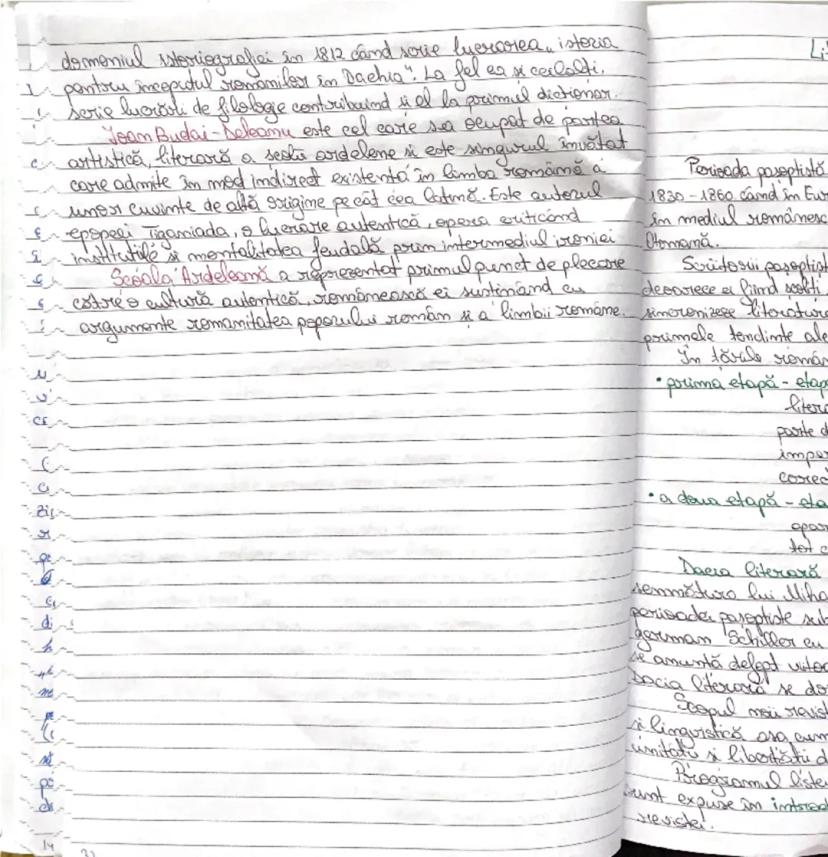 domeniul istoriografiei în 1812 când scrie lucrarea „istoria
pentru începutul romanilor în Dachia". La fel ca și ceilalți,
scrie lucrări de filologie contribuind și el la primul dicționar.
Ioan Budai-Deleanu este cel care s-a ocupat de partea
artistică, literară a școlii ardelene și este singurul învățat
care admite în mod indirect existența în limba română a
unor cuvinte de altă origine pe cât cea latină. Este autorul
epopeei Țiganiada, o lucrare autentică, opera criticând
instituțiile și mentalitatea feudală prin intermediul ironiei
Școala Ardeleană a reprezentat primul punct de plecare
către o cultură autentică, românească ei susținând cu
argumente romanitatea poporului român și a limbii române.
Li
Perioada pașoptistă
1830-1860 când în Eur
în mediul românesc
Otomană.
Scriitorii pașoptist
deoarece ei fiind
sincronizeze literatura
primele tendințe ale
În țările român
• prima etapă - etap
litera
parte d
impor
corec
• a doua etapă - eta
apar
tot c
Dacia literară
semnătura lui Miha
perioadei pașoptiste sub
german Schiller cu
se anunță defapt viitor
Dacia literară se do
Scopul noii revist
și lingvistică așa cum
unității și libertății d
Programul liter
sunt expuse în introd
reviste!
14